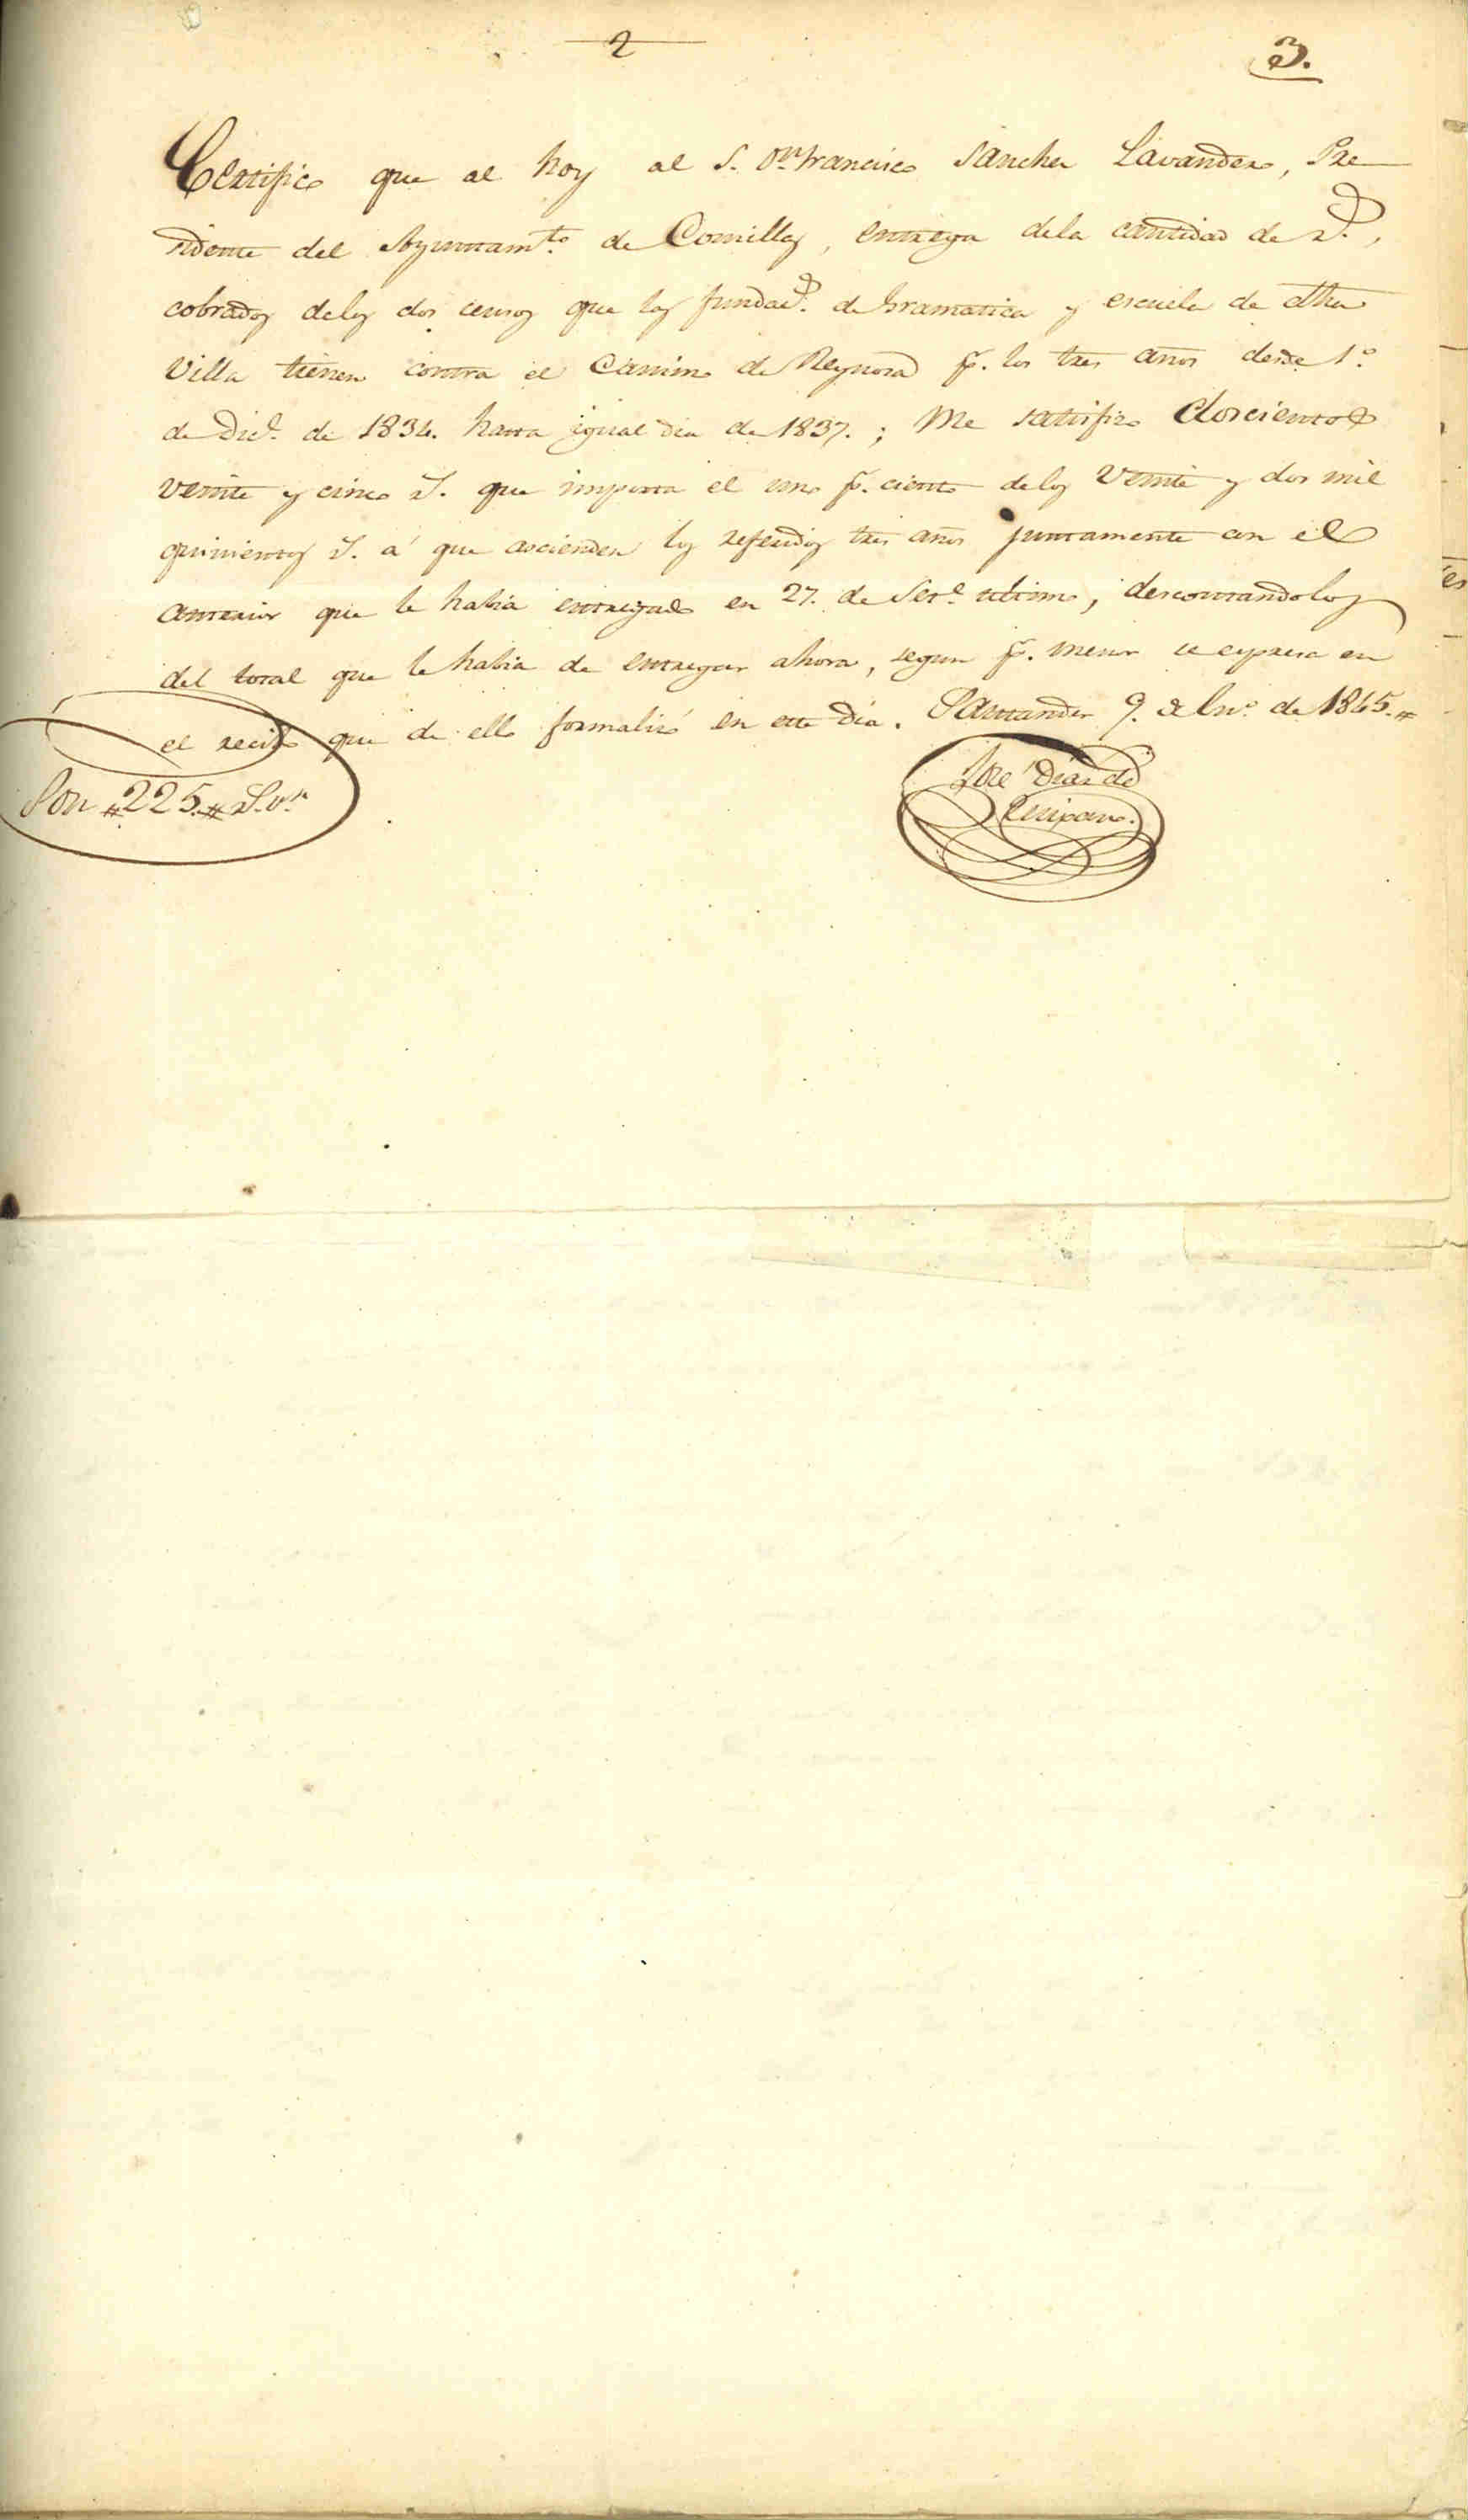 2
3.
Certifico que al hoy al S. Dn. Francisco Sanchez Lavandero, Pre
sidente del Ayuntamto. de Comillas, entrega dela cantidad de rs.,
cobrados delos dos censos que las fundacs. de Gramatica y escuela de dha
Villa tienen contra el Camino de Reynosa pr. los tres años desde 1.º
de Dice. de 1834. hasta igual dia de 1837.; Me satisfizo Doscientos
veinte y cinco rs. que importa el uno pr. ciento delos Veinte y dos mil
quinientos rs. á que ascienden los referidos tres años juntamente con el
anterior que le habia entregado en 27. de Sete. ultimo, descontandolos
del total que le habia de entregar ahora, segun pr. menor se expresa en
el recibo que de ello formalizó en este dia. Santander 9. de Eno. de 1845.#
Son #225.# rs. vn.
José Diaz de